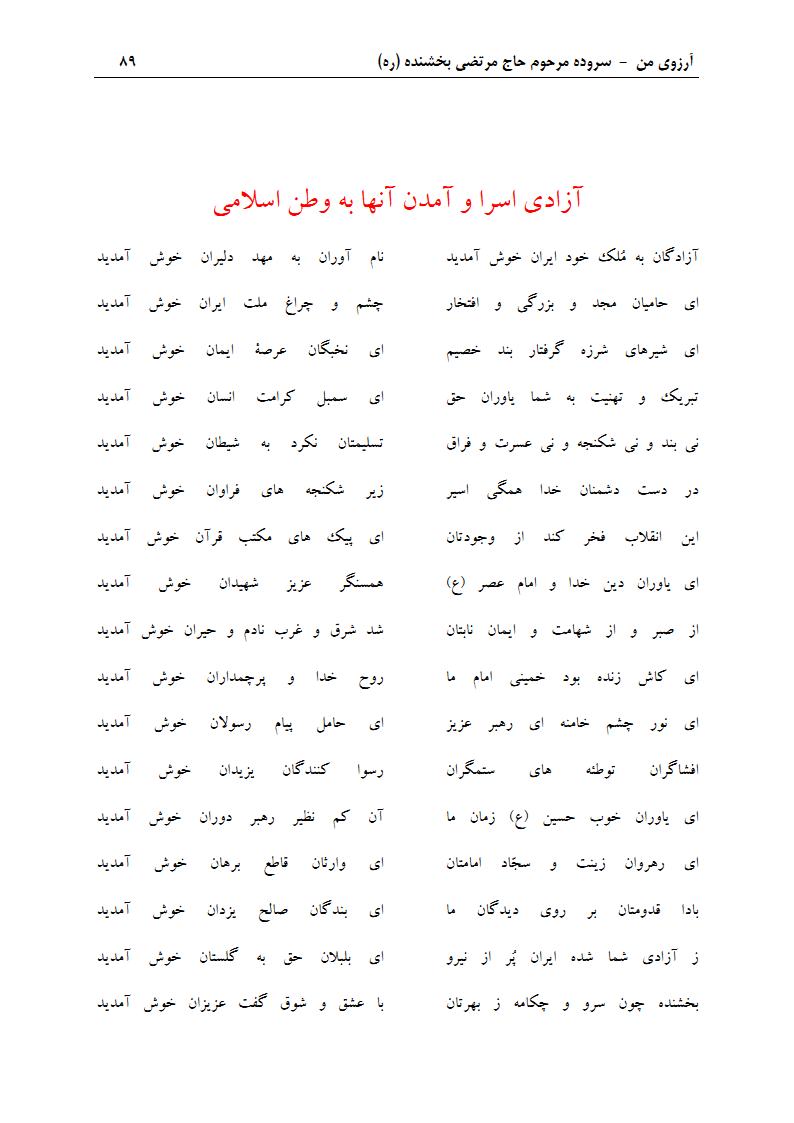 آرزوی من - سروده مرحوم حاج مرتضی بخشنده (ره) ۸۹
آزادی اسرا و آمدن آنها به وطن اسلامی
آزادگان به مُلک خود ایران خوش آمدید نام آوران به مهد دلیران خوش آمدید
ای حامیان مجد و بزرگی و افتخار چشم و چراغ ملت ایران خوش آمدید
ای شیرهای شرزه گرفتار بند خصیم ای نخبگان عرصهٔ ایمان خوش آمدید
تبریک و تهنیت به شما یاوران حق ای سمبل کرامت انسان خوش آمدید
نی بند و نی شکنجه و نی عسرت و فراق تسلیمتان نکرد به شیطان خوش آمدید
در دست دشمنان خدا همگی اسیر زیر شکنجه های فراوان خوش آمدید
این انقلاب فخر کند از وجودتان ای پیک های مکتب قرآن خوش آمدید
ای یاوران دین خدا و امام عصر (ع) همسنگر عزیز شهیدان خوش آمدید
از صبر و از شهامت و ایمان نابتان شد شرق و غرب نادم و حیران خوش آمدید
ای کاش زنده بود خمینی امام ما روح خدا و پرچمداران خوش آمدید
ای نور چشم خامنه ای رهبر عزیز ای حامل پیام رسولان خوش آمدید
افشاگران توطئه های ستمگران رسوا کنندگان یزیدان خوش آمدید
ای یاوران خوب حسین (ع) زمان ما آن کم نظیر رهبر دوران خوش آمدید
ای رهروان زینت و سجّاد امامتان ای وارثان قاطع برهان خوش آمدید
بادا قدومتان بر روی دیدگان ما ای بندگان صالح یزدان خوش آمدید
ز آزادی شما شده ایران پُر از نیرو ای بلبلان حق به گلستان خوش آمدید
بخشنده چون سرو و چکامه ز بهرتان با عشق و شوق گفت عزیزان خوش آمدید